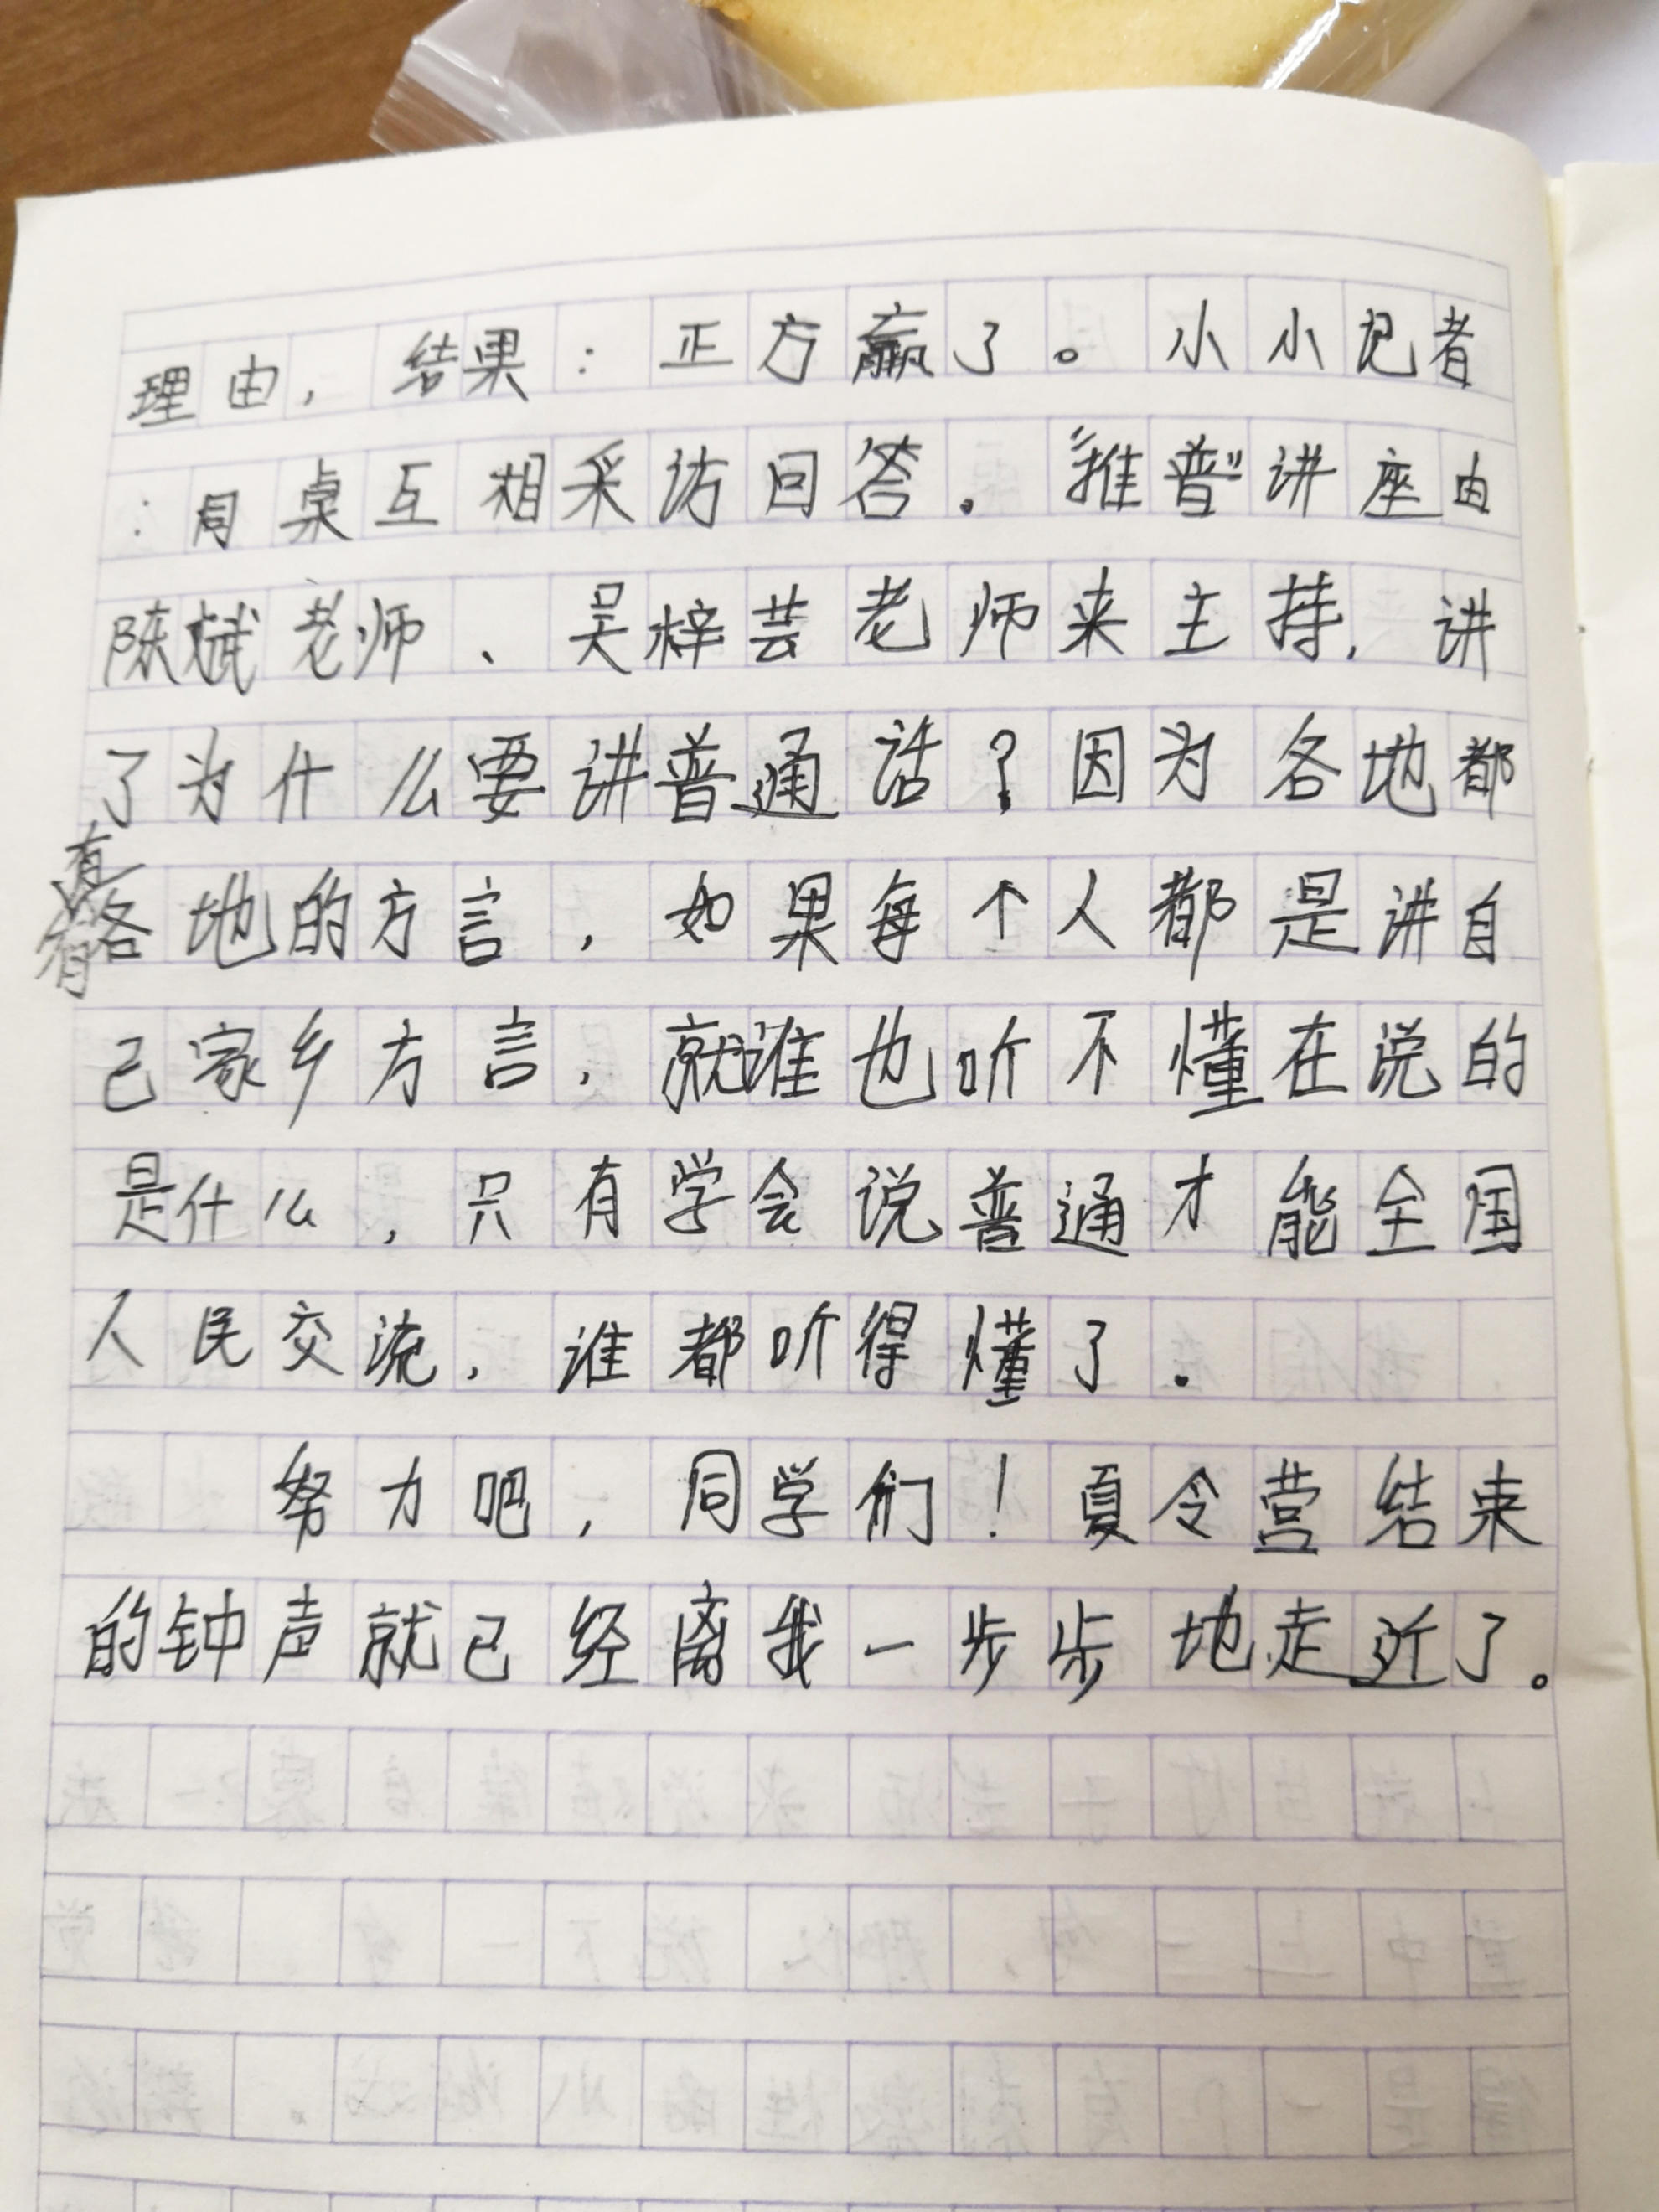 理由，结果：正方赢了。小小记者
：同桌互相采访回答。“推普”讲座由
陈斌老师、吴梓芸老师来主持，讲
了为什么要讲普通话？因为各地都
有各地的方言，如果每个人都是讲自
己家乡方言，就谁也听不懂在说的
是什么，只有学会说普通才能全国
人民交流，谁都听得懂了。
努力吧，同学们！夏令营结束
的钟声就已经离我一步步地走近了。